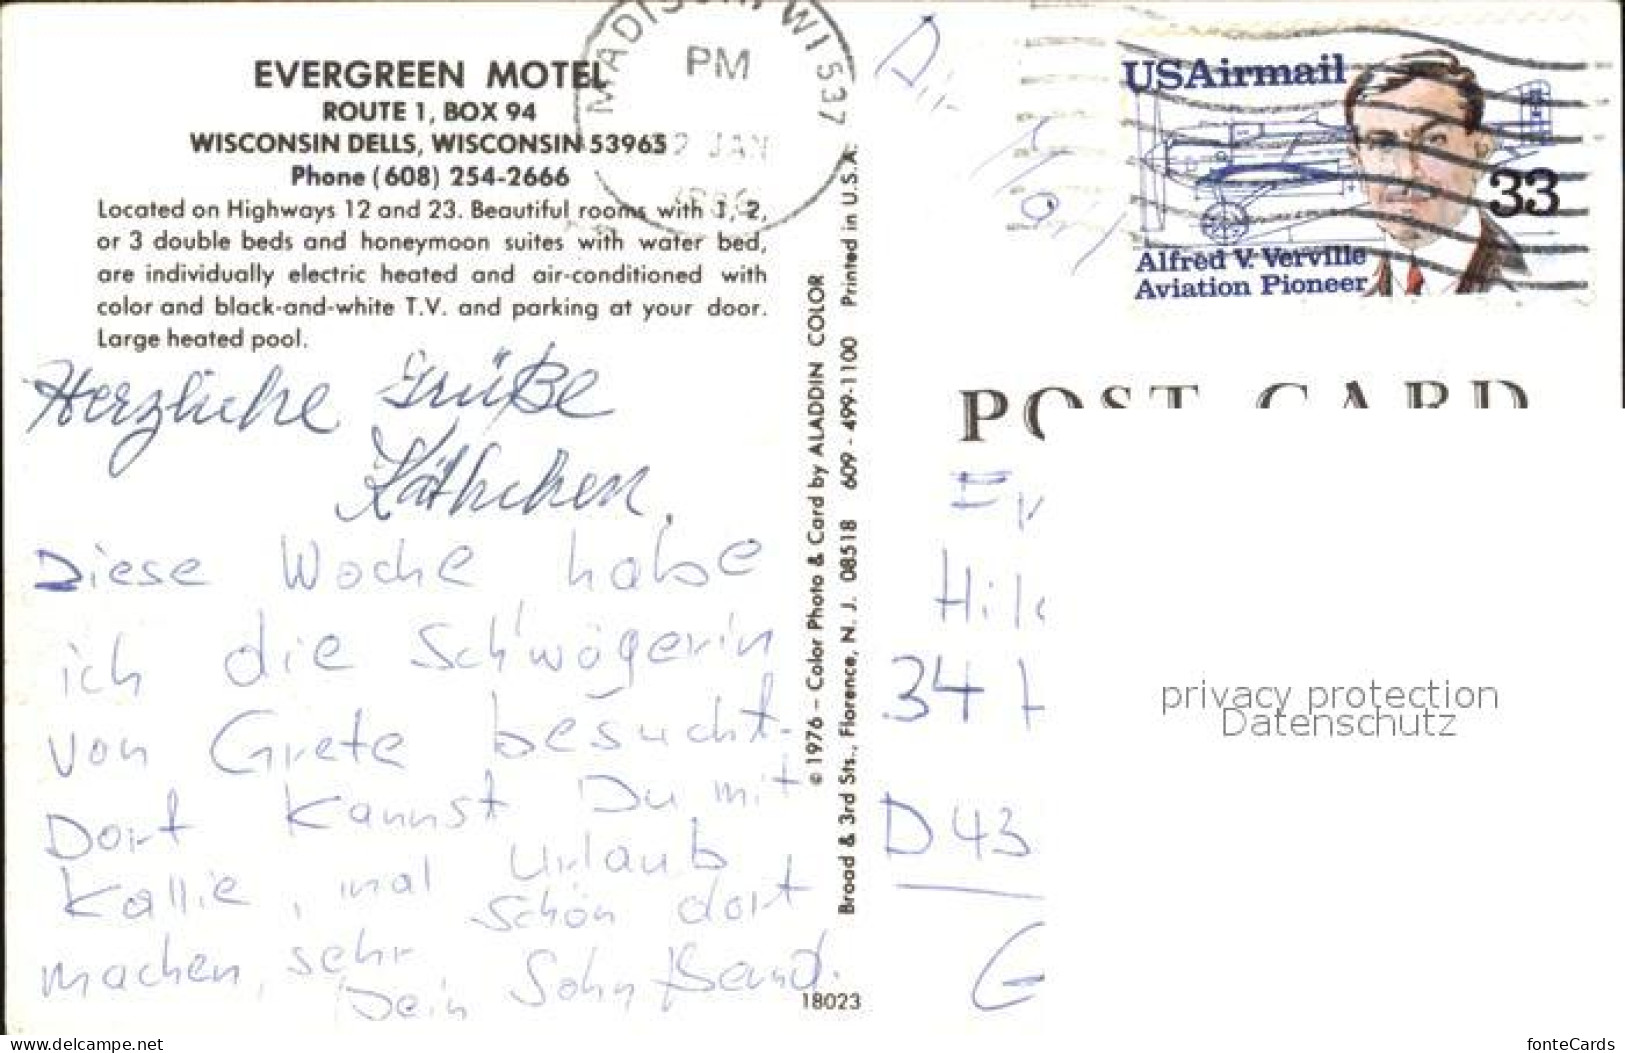 EVERGREEN MOTEL
ROUTE 1, BOX 94
WISCONSIN DELLS, WISCONSIN 53965
Phone (608) 254-2666
Located on Highways 12 and 23. Beautiful rooms with 1, 2,
or 3 double beds and honeymoon suites with water bed,
are individually electric heated and air-conditioned with
color and black-and-white T.V. and parking at your door.
Large heated pool.
Herzliche Grüße
Käthchen.
Diese Woche habe
ich die Schwägerin
von Grete besucht.
Dort kannst Du mit
Kallie, mal Urlaub
machen, sehr schön dort
Dein Sohn Bernd.
© 1976 – Color Photo & Card by ALADDIN COLOR
Broad & 3rd Sts., Florence, N. J. 08518 609 - 499-1100 Printed in U.S.A.
18023
MADISON, WI 537
PM
2 JAN
USAirmail
33
Alfred V. Verville
Aviation Pioneer
POST CARD
34
D 43
privacy protection
Datenschutz
www.delcampe.net
fonteCards